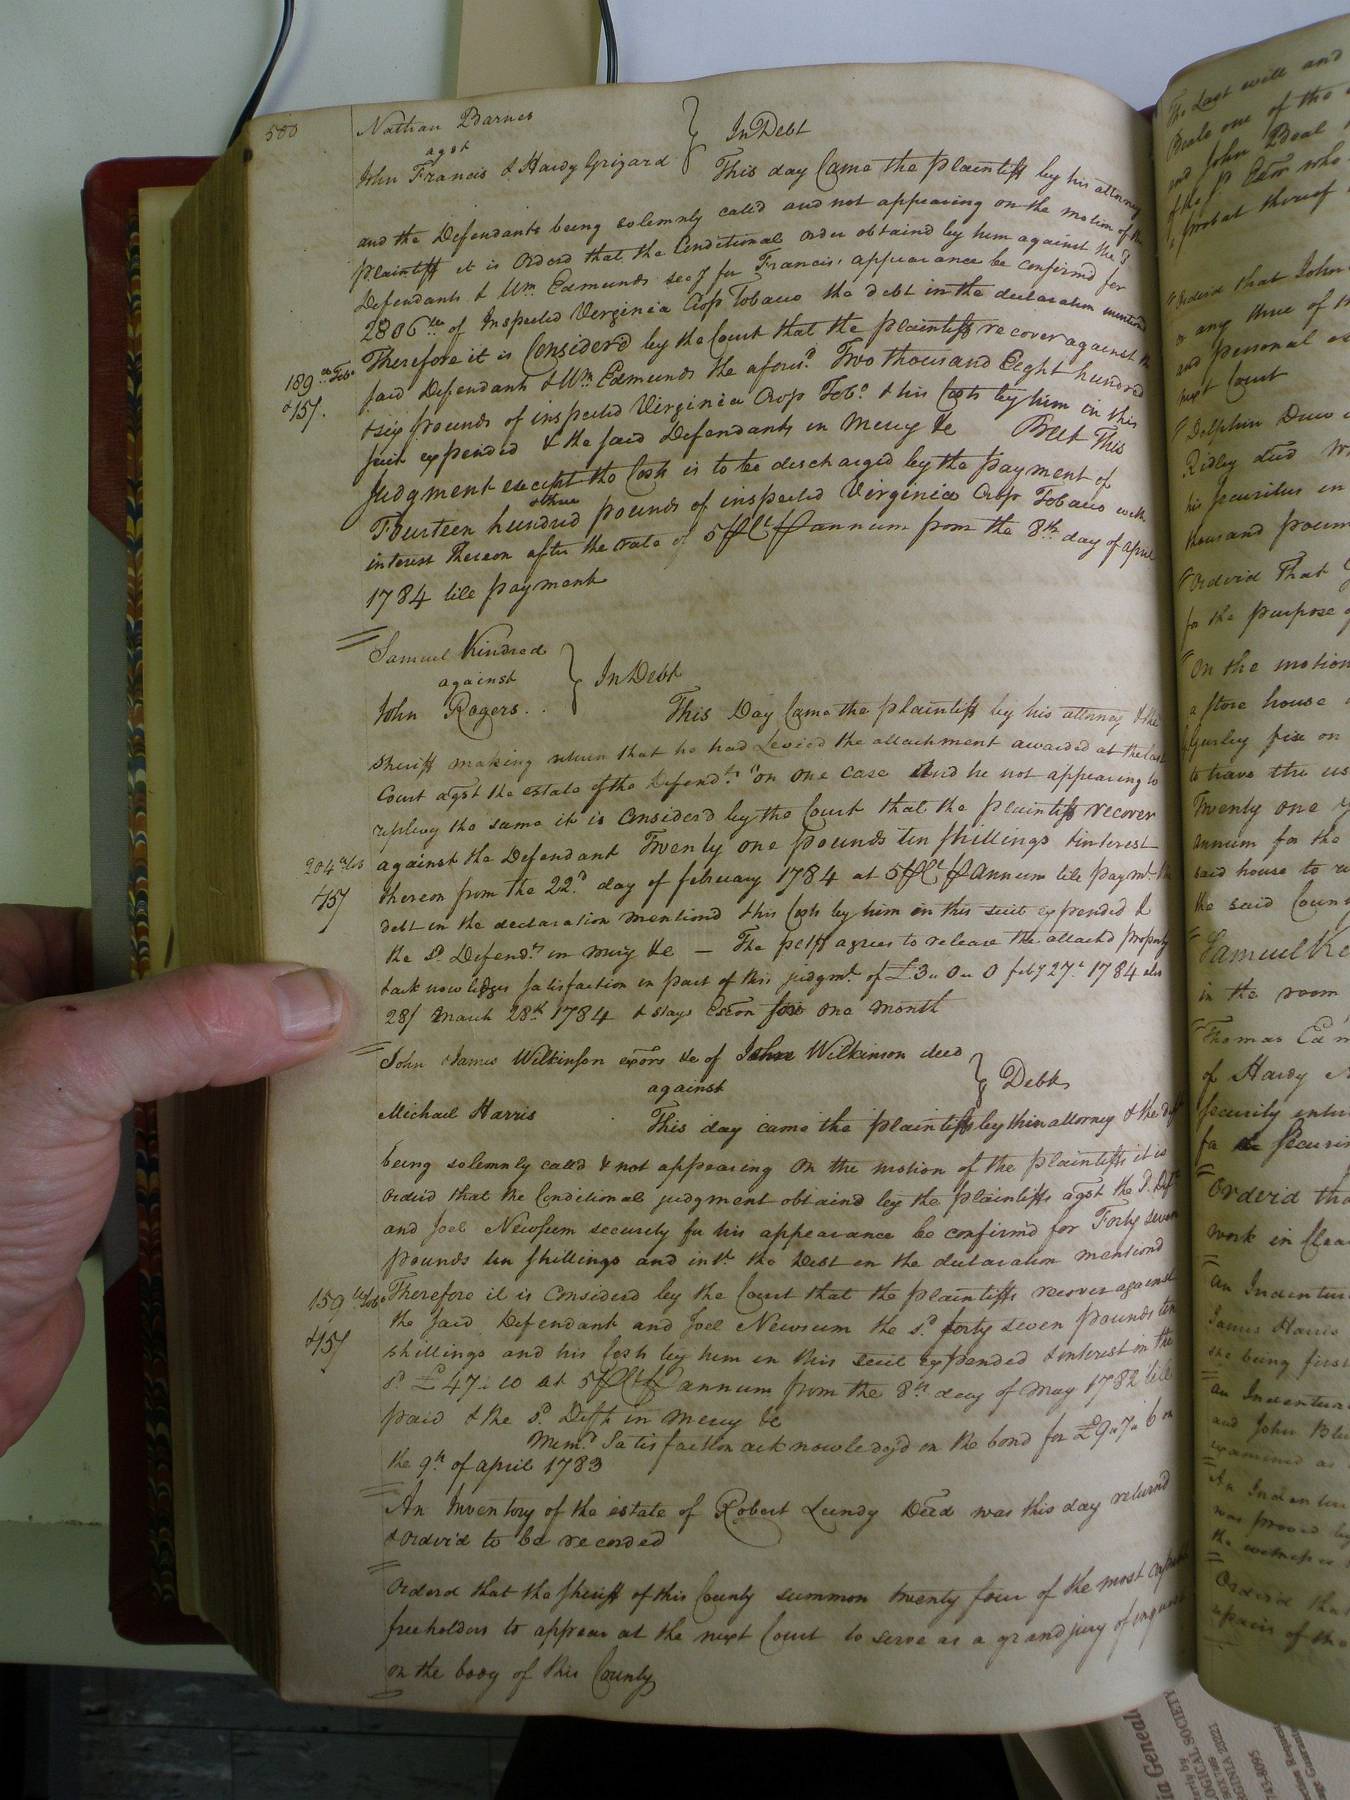 500
Nathan Barnes
agst
John Francis & Hardy Grizard
In Debt
This day Came the plaintiff by his attorney
and the Defendants being solemnly calld and not appearing on the motion of the
plaintiff it is Orderd that the Conditional order obtaind by him against the
Defendants & Wm. Edmunds secy for Francis's appearance be confirmd for
2806 lbs of Inspected Virginia Crop Tobacco the debt in the declaration mentiond
Therefore it is Considerd by the Court that the plaintiff recover against the
said Defendants & Wm Edmunds the afoursd. Two thousand Eight hundred
& six pounds of inspected Virginia Crop Tobo. & his Costs by him in this
suit expended & the said Defendants in Mercy &c But This
Judgment except the Costs is to be discharged by the payment of
Fourteen hundred & three pounds of inspected Virginia Crop Tobacco with
interest thereon after the rate of 5 PCt P annum from the 8th day of April
1784 till payment
189 lbs Tobo
& 15/.
Samuel Kindred
against
John Rogers
In Debt
This Day Came the plaintiff by his attorney & the
Sheriff making return that he had Levied the attachment awarded at the last
Court agst the estate of the Defendt. on one Case And he not appearing to
replevy the same it is Considerd by the Court that the plaintiff recover
against the Defendant Twenty one pounds ten shillings & interest
thereon from the 22d. day of february 1784 at 5 PCt P Annum till paymt. the
debt in the declaration mentiond & his Costs by him in this suit expended &
the sd. Defendt. in mercy &c — The pltff agrees to release the attachd property
& acknowledges satisfaction in part of this judgmt. of £3 " 0 " 0 feby 27th 1784 also
28/ March 28th 1784 & stays Exeon for one month
204 lbs
15/
John & James Wilkinson exors &c of John Wilkinson decd
against
Michael Harris
Debt
This day came the plaintiffs by their attorney & the deft
being solemnly calld & not appearing On the motion of the plaintiffs it is
Orderd that the Conditional judgment obtaind by the plaintiffs agst the sd. Deft
and Joel Newsum security for his appearance be confirmd for Forty seven
pounds ten shillings and intt. the Debt in the declaration mentiond
Therefore it is Considerd by the Court that the plaintiffs recover against
the said Defendant and Joel Newsum the sd. forty seven pounds ten
shillings and his Costs by him in this suit Expended & interest on the
sd £47 : 10 at 5 PCt P annum from the 8th day of May 1782 till
paid & the sd. Deft in mercy &c
Memo. Satisfaction acknowledg'd on the bond for £9 " 7 " 6 on
the 9th of april 1783
159 lbs Tobo
& 15/
An Inventory of the estate of Robert Lundy Decd was this day returnd
& Order'd to be recorded
Orderd that the Sheriff of this County summon twenty four of the most capable
freeholders to appear at the next Court to serve as a grand jury of inquest
on the body of this County
The Last will and
Beale one of the
and John Beal
of the sd Exor who
Orderd that John
or any three of the
and personal
next Court
Dolphin Drew
Ridley decd
his securities in
thousand pounds
Orderd That
for the purpose
On the motion
a store house
Gurley fix on
to have the
Twenty one
annum for the
said house to
the said County
Samuel
in the room
Thomas
of Hardy
security
Orderd tha
work in
An Indenture
James Harris
she being first
an Indenture
and John
examined as
An Indenture
was proved by
the witnesses
Orderd that
repairs of the
in Geneal
LOGICAL SOCIETY
RGINIA 22021